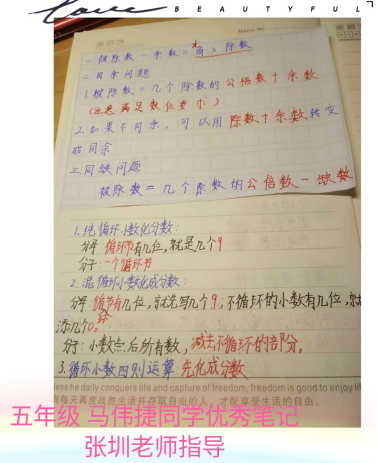 BEAUTYFUL
一.被除数－余数=商×除数
二.同余问题
1.被除数=几个除数的公倍数+余数
(注意满足数位要求)
2.如果不同余，可以用除数+余数转变
成同余
三.同缺问题
被除数=几个除数的公倍数－缺数
1.纯循环小数化分数:
分母:循环节有几位，就是几个9
分子:一个循环节
2.混循环小数化成分数:
分母:循节有几位，就先写几个9，不循环的小数有几位，就
添几个0。
分子:小数点后所有数，减去不循环的部分。
3.循环小数四则运算先化成分数
less he daily conquers life and capture of freedom, freedom is good to enjoy life
有每天再度战胜生活并夺取自由的人，才配享受生活的自由。
五年级 马伟捷同学优秀笔记
张圳老师指导